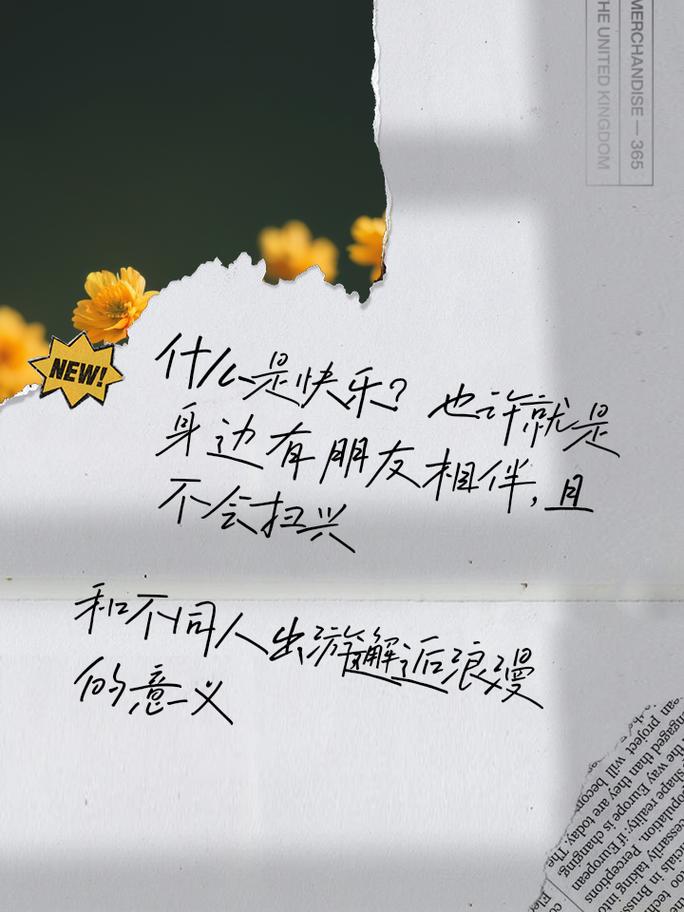 MERCHANDISE — 365
THE UNITED KINGDOM
NEW!
什么是快乐？也许就是
身边有朋友相伴，且
不会扫兴
和不同人出游邂逅浪漫
的意义
engaged than they are today. The
the way Europe is changing
shape reality: if European
population. Perceptions
necessarily taking into
project will become